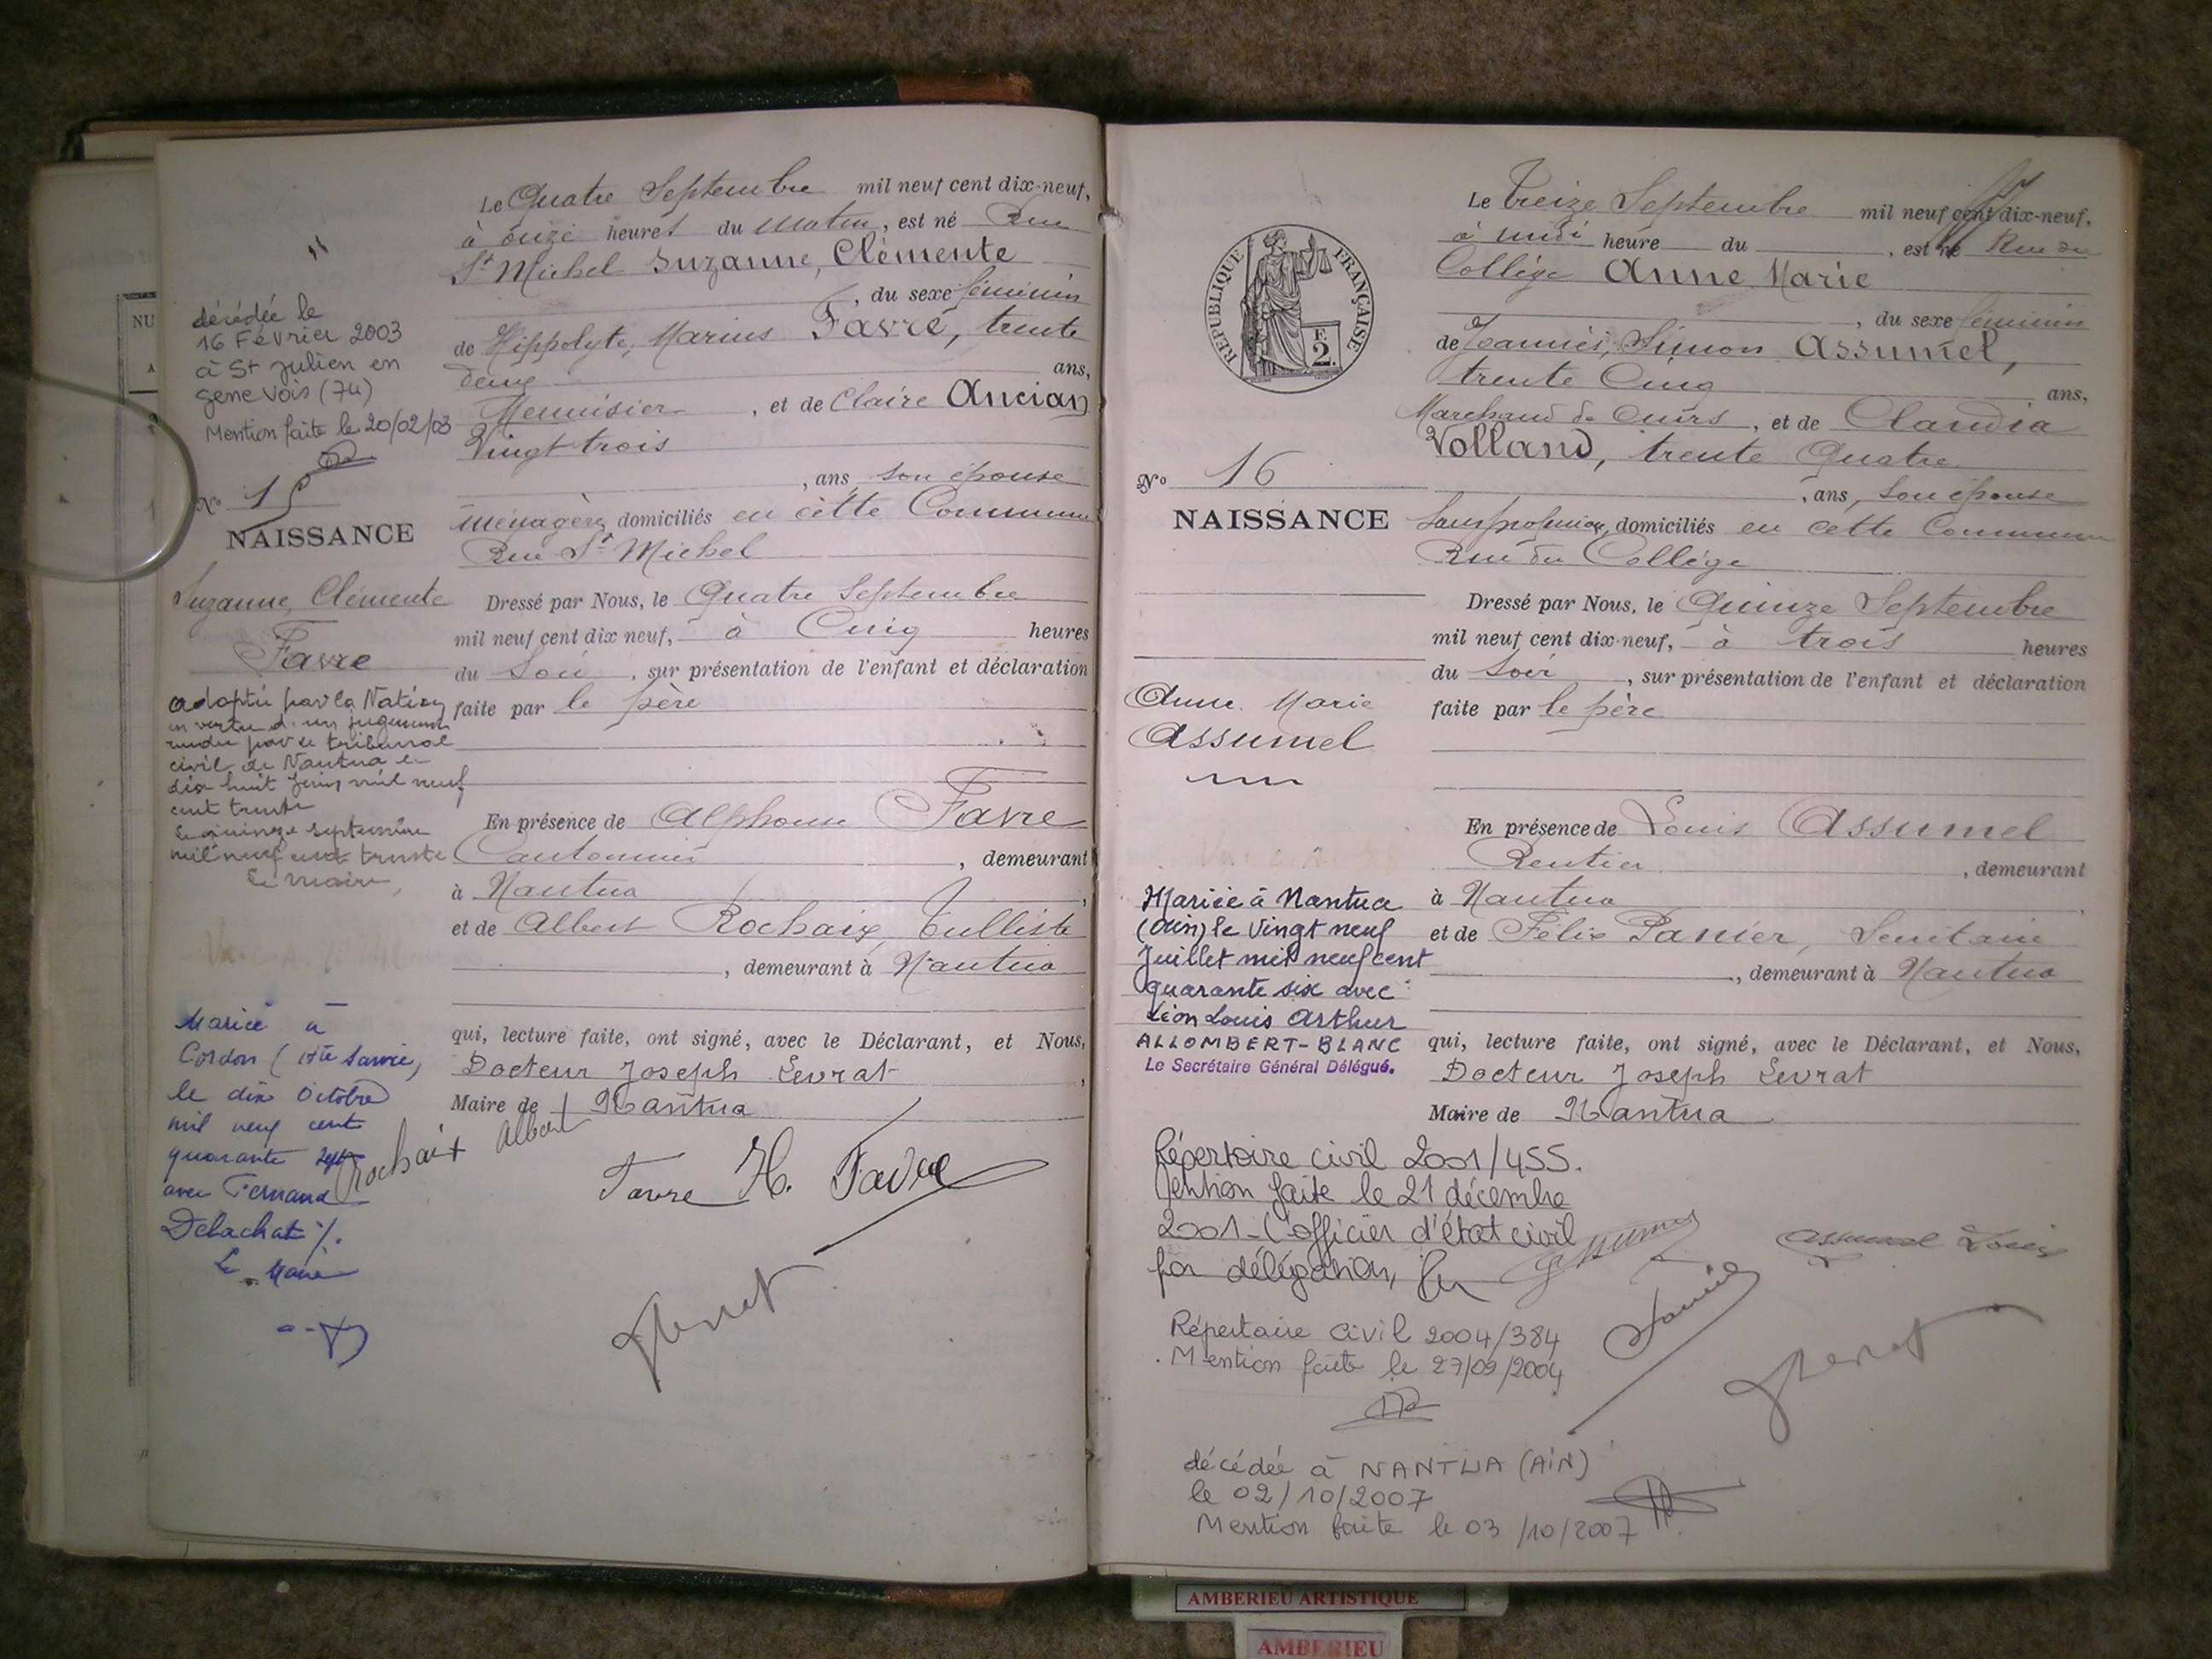 Le Quatre Septembre mil neuf cent dix-neuf,
à onze heures du matin, est né Rue
St Michel Suzanne, Clémente
, du sexe féminin
de Hippolyte, Marius Favre, trente
deux ans,
Menuisier, et de Claire Ancian
Vingt trois
, ans, son épouse
Ménagère, domiciliés en cette Commune
Rue St Michel
Dressé par Nous, le Quatre Septembre
mil neuf cent dix neuf, à Cinq heures
du Soir, sur présentation de l'enfant et déclaration
faite par le père
En présence de Alphonse Favre
Cantonnier, demeurant
à Nantua,
et de Albert Rochaix, Tulliste
, demeurant à Nantua
qui, lecture faite, ont signé, avec le Déclarant, et Nous,
Docteur Joseph Levrat,
Maire de Nantua
Rochaix Albert
Favre H. Favre
décédée le
16 Février 2003
à St Julien en
genevois (74)
Mention faite le 20/02/03
No 15
NAISSANCE
Suzanne, Clémente
Favre
adoptée par la Nation
en vertu d'un jugement
rendu par le tribunal
civil de Nantua le
dix huit Juin mil neuf
cent trente
Le quinze septembre
mil neuf cent trente
Le maire,
Mariée à
Cordon (Hte Savoie)
le dix Octobre
mil neuf cent
quarante sept
avec Fernand
Debachat %.
Le Maire
NU
A
Le Treize Septembre mil neuf cent dix-neuf,
à midi heure du, est né Rue du
Collège Anne Marie
, du sexe féminin
de Joannès, Simon Assumel,
trente Cinq ans,
Marchand de Cuirs, et de Claudia
Volland, trente Quatre
, ans, son épouse
Sans profession, domiciliés en cette Commune
Rue du Collège
Dressé par Nous, le Quinze Septembre
mil neuf cent dix-neuf, à trois heures
du Soir, sur présentation de l'enfant et déclaration
faite par le père
En présence de Louis Assumel
Rentier, demeurant
à Nantua,
et de Félix Panier,
, demeurant à Nantua
qui, lecture faite, ont signé, avec le Déclarant, et Nous,
Docteur Joseph Levrat
Maire de Nantua
Assumel Louis
RÉPUBLIQUE FRANÇAISE
F
2.
No 16
NAISSANCE
Anne Marie
Assumel
Mariée à Nantua
(Ain) le Vingt neuf
Juillet mil neuf cent
quarante six avec
Léon Louis Arthur
ALLOMBERT-BLANC
Le Secrétaire Général Délégué.
Répertoire civil 2001/455.
Mention faite le 21 décembre
2001 - L'officier d'état civil
par délégation,
Répertoire Civil 2004/384
Mention faite le 27/09/2004
décédée à NANTUA (AIN)
le 02/10/2007
Mention faite le 03/10/2007
AMBERIEU ARTISTIQUE
AMBERIEU